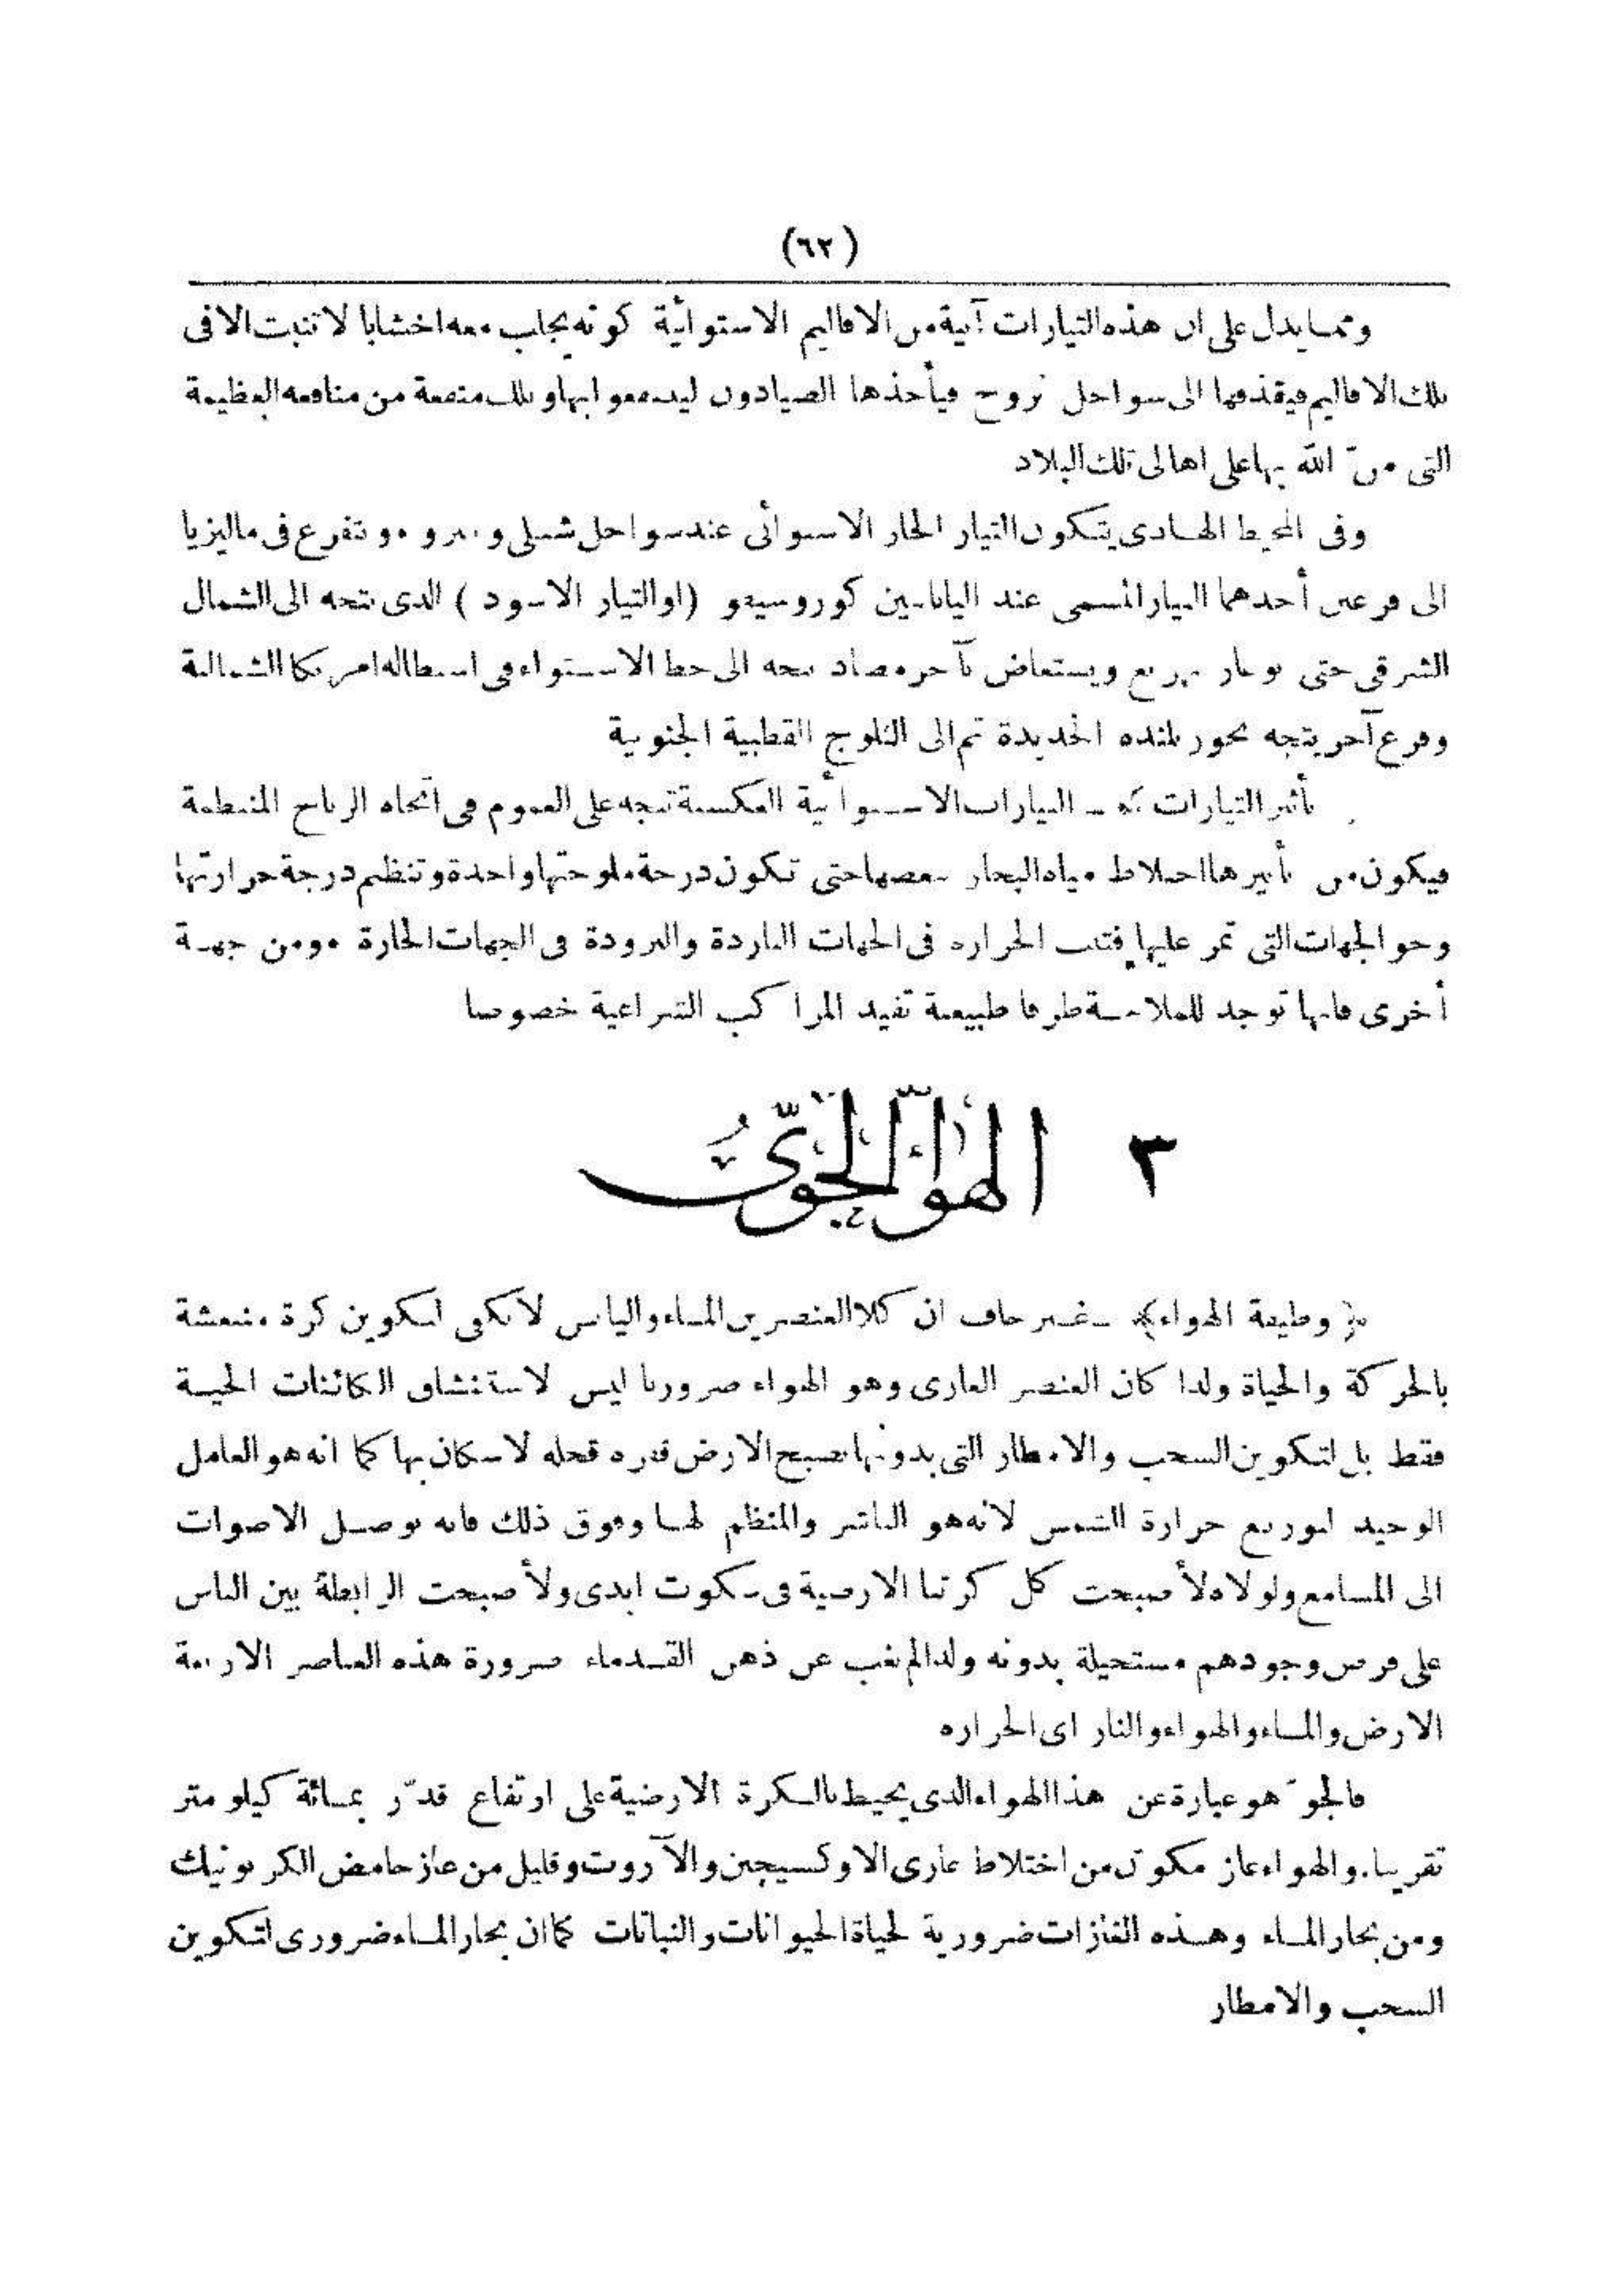 (٦٢)
ومما يدل على ان هذه التيارات آتية من الاقاليم الاستوائية كونه يجلب معه اخشابا لا تنبت الا فى
تلك الاقاليم فيقذفها الى سواحل نروج فيأخذها الصيادون لينتفعوا بها وتلك منفعة من منافعه العظيمة
التى منّ الله بها على اهالى تلك البلاد
وفى المحيط الهادى يتكون التيار الحار الاستوائى عند سواحل شيلى و بيرو وتتفرع فى ماليزيا
الى فرعين أحدهما التيار المسمى عند اليابانيين كوروسيفو (او التيار الاسود) الذى يتجه الى الشمال
الشرقى حتى بوغاز بهرنج ويستعاض بآخر مضاد يتجه الى خط الاستواء فى استطالة امريكا الشمالية
وفرع آخر يتجه نحو زلنده الجديدة ثم الى الثلوج القطبية الجنوبية
تأثير التيارات ـ التيارات الاستوائية العكسية تتجه على العموم فى اتجاه الرياح المنتظمة
فيكون من تأثيرها اختلاط مياه البحار ببعضها حتى تكون درجة ملوحتها واحدة وتنظم درجة حرارتها
وجو الجهات التى تمر عليها فتبث الحرارة فى الجهات الباردة والبرودة فى الجهات الحارة ومن جهة
أخرى فانها توجد للملاحة طرقا طبيعية تفيد المراكب الشراعية خصوصا
٣ الهواء الجوّىّ
﴿وظيفة الهواء﴾ ـ غير خاف ان كلا العنصرين الماء واليابس لا يكفى لتكوين كرة منتعشة
بالحركة والحياة ولذا كان العنصر الغازى وهو الهواء ضروريا ليس لاستنشاق الكائنات الحية
فقط بل لتكوين السحب والامطار التى بدونها تصبح الارض قفرة قحلة لا سكان بها كما انه هو العامل
الوحيد لتوزيع حرارة الشمس لانه هو الناشر والمنظم لها وفوق ذلك فانه يوصل الاصوات
الى المسامع ولولاه لأصبحت كل كرتنا الارضية فى سكوت ابدى ولأصبحت الرابطة بين الناس
على فرض وجودهم مستحيلة بدونه ولذا لم يغب عن ذهن القدماء ضرورة هذه العناصر الاربعة
الارض والماء والهواء والنار اى الحرارة
فالجوّ هو عبارة عن هذا الهواء الذى يحيط بالكرة الارضية على ارتفاع قدّر بمائة كيلو متر
تقريبا. والهواء غاز مكوّن من اختلاط غازى الاوكسيجين والآزوت وقليل من غاز حامض الكربونيك
ومن بخار الماء وهذه الغازات ضرورية لحياة الحيوانات والنباتات كما ان بخار الماء ضرورى لتكوين
السحب والامطار